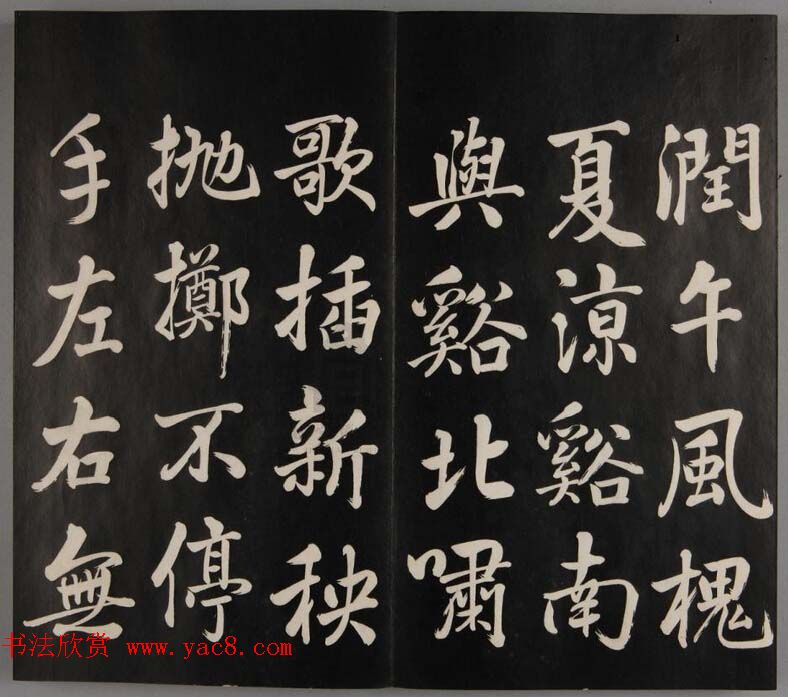 潤午風槐
夏涼谿南
與谿北嘯
歌插新秧
抛擲不停
手左右無
书法欣赏 www.yac8.com